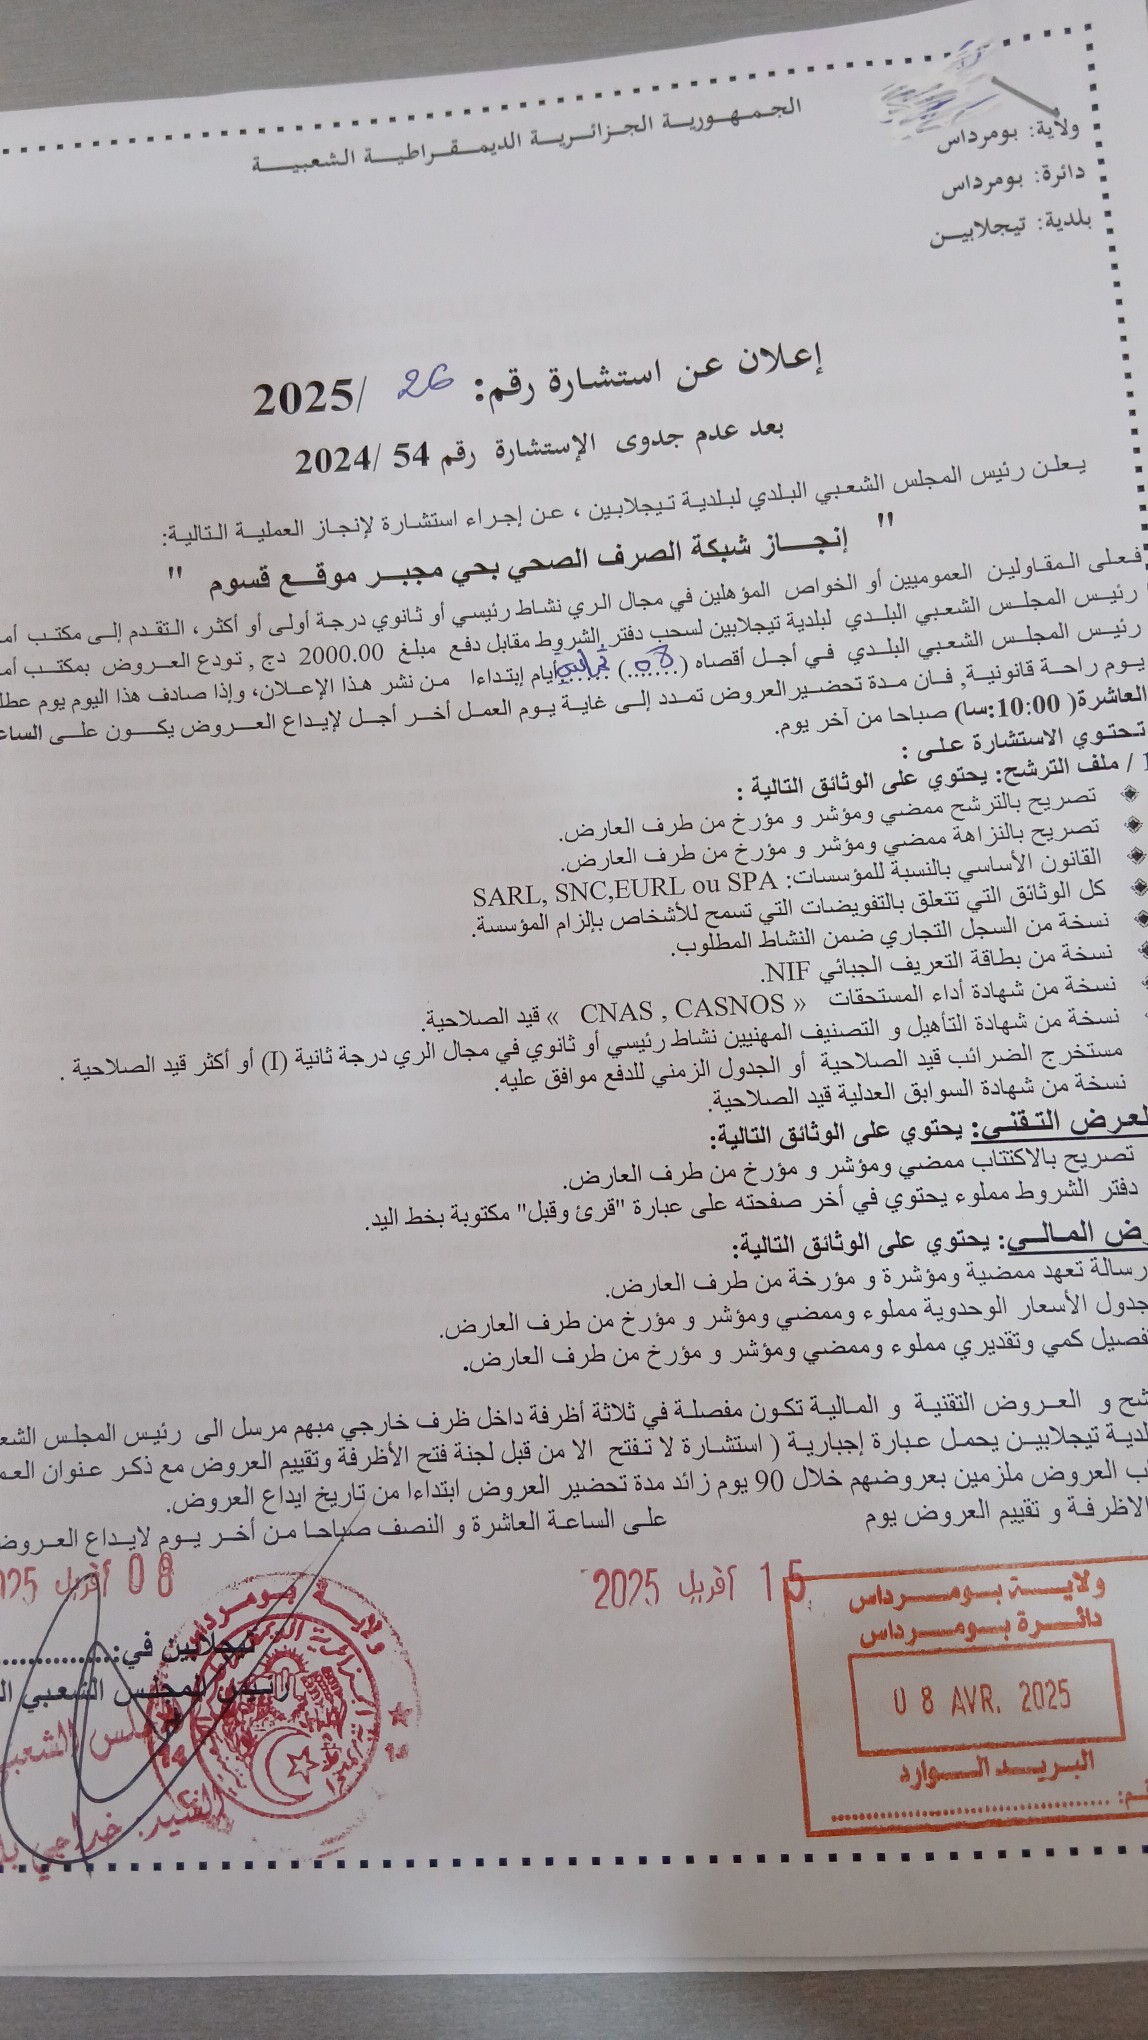 الجمهورية الجزائرية الديمقراطية الشعبية
ولاية: بومرداس
دائرة: بومرداس
بلدية: تيجلابين
إعلان عن استشارة رقم: 26 /2025
بعد عدم جدوى الإستشارة رقم 54 /2024
يعلن رئيس المجلس الشعبي البلدي لبلدية تيجلابين ، عن إجراء استشارة لإنجاز العملية التالية:
" إنجاز شبكة الصرف الصحي بحي مجبر موقع قسوم "
فعلى المقاولين العموميين أو الخواص المؤهلين في مجال الري نشاط رئيسي أو ثانوي درجة أولى أو أكثر، التقدم إلى مكتب
رئيس المجلس الشعبي البلدي لبلدية تيجلابين لسحب دفتر الشروط مقابل دفع مبلغ 2000.00 دج , تودع العروض بمكتب
رئيس المجلس الشعبي البلدي في أجل أقصاه (08) أيام إبتداءا من نشر هذا الإعلان، وإذا صادف هذا اليوم يوم
يوم راحة قانونية, فان مدة تحضير العروض تمدد إلى غاية يوم العمل أخر أجل لإيداع العروض يكون على
العاشرة( 10:00:سا) صباحا من آخر يوم.
تحتوي الاستشارة على :
I / ملف الترشح: يحتوي على الوثائق التالية :
تصريح بالترشح ممضي ومؤشر و مؤرخ من طرف العارض.
تصريح بالنزاهة ممضي ومؤشر و مؤرخ من طرف العارض.
القانون الأساسي بالنسبة للمؤسسات: SARL, SNC,EURL ou SPA
كل الوثائق التي تتعلق بالتفويضات التي تسمح للأشخاص بإلزام المؤسسة.
نسخة من السجل التجاري ضمن النشاط المطلوب.
نسخة من بطاقة التعريف الجبائي NIF.
نسخة من شهادة أداء المستحقات « CNAS , CASNOS » قيد الصلاحية.
نسخة من شهادة التأهيل و التصنيف المهنيين نشاط رئيسي أو ثانوي في مجال الري درجة ثانية (I) أو أكثر قيد الصلاحية .
مستخرج الضرائب قيد الصلاحية أو الجدول الزمني للدفع موافق عليه.
نسخة من شهادة السوابق العدلية قيد الصلاحية.
العرض التقني: يحتوي على الوثائق التالية:
تصريح بالاكتتاب ممضي ومؤشر و مؤرخ من طرف العارض.
دفتر الشروط مملوء يحتوي في أخر صفحته على عبارة "قرئ وقبل" مكتوبة بخط اليد.
المالي: يحتوي على الوثائق التالية:
رسالة تعهد ممضية ومؤشرة و مؤرخة من طرف العارض.
جدول الأسعار الوحدوية مملوء وممضي ومؤشر و مؤرخ من طرف العارض.
كمي وتقديري مملوء وممضي ومؤشر و مؤرخ من طرف العارض.
و العروض التقنية و المالية تكون مفصلة في ثلاثة أظرفة داخل ظرف خارجي مبهم مرسل الى رئيس المجلس
تيجلابين يحمل عبارة إجبارية ( استشارة لا تفتح الا من قبل لجنة فتح الأظرفة وتقييم العروض مع ذكر عنوان
العروض ملزمين بعروضهم خلال 90 يوم زائد مدة تحضير العروض ابتداءا من تاريخ ايداع العروض.
الاظرفة و تقييم العروض يوم على الساعة العاشرة و النصف صباحا من أخر يوم لايداع العروض
15 أفريل 2025
08 أفريل 2025
تيجلابين في:
رئيس المجلس الشعبي
ولاية بومرداس
دائرة بومرداس
08 AVR. 2025
البريد الوارد